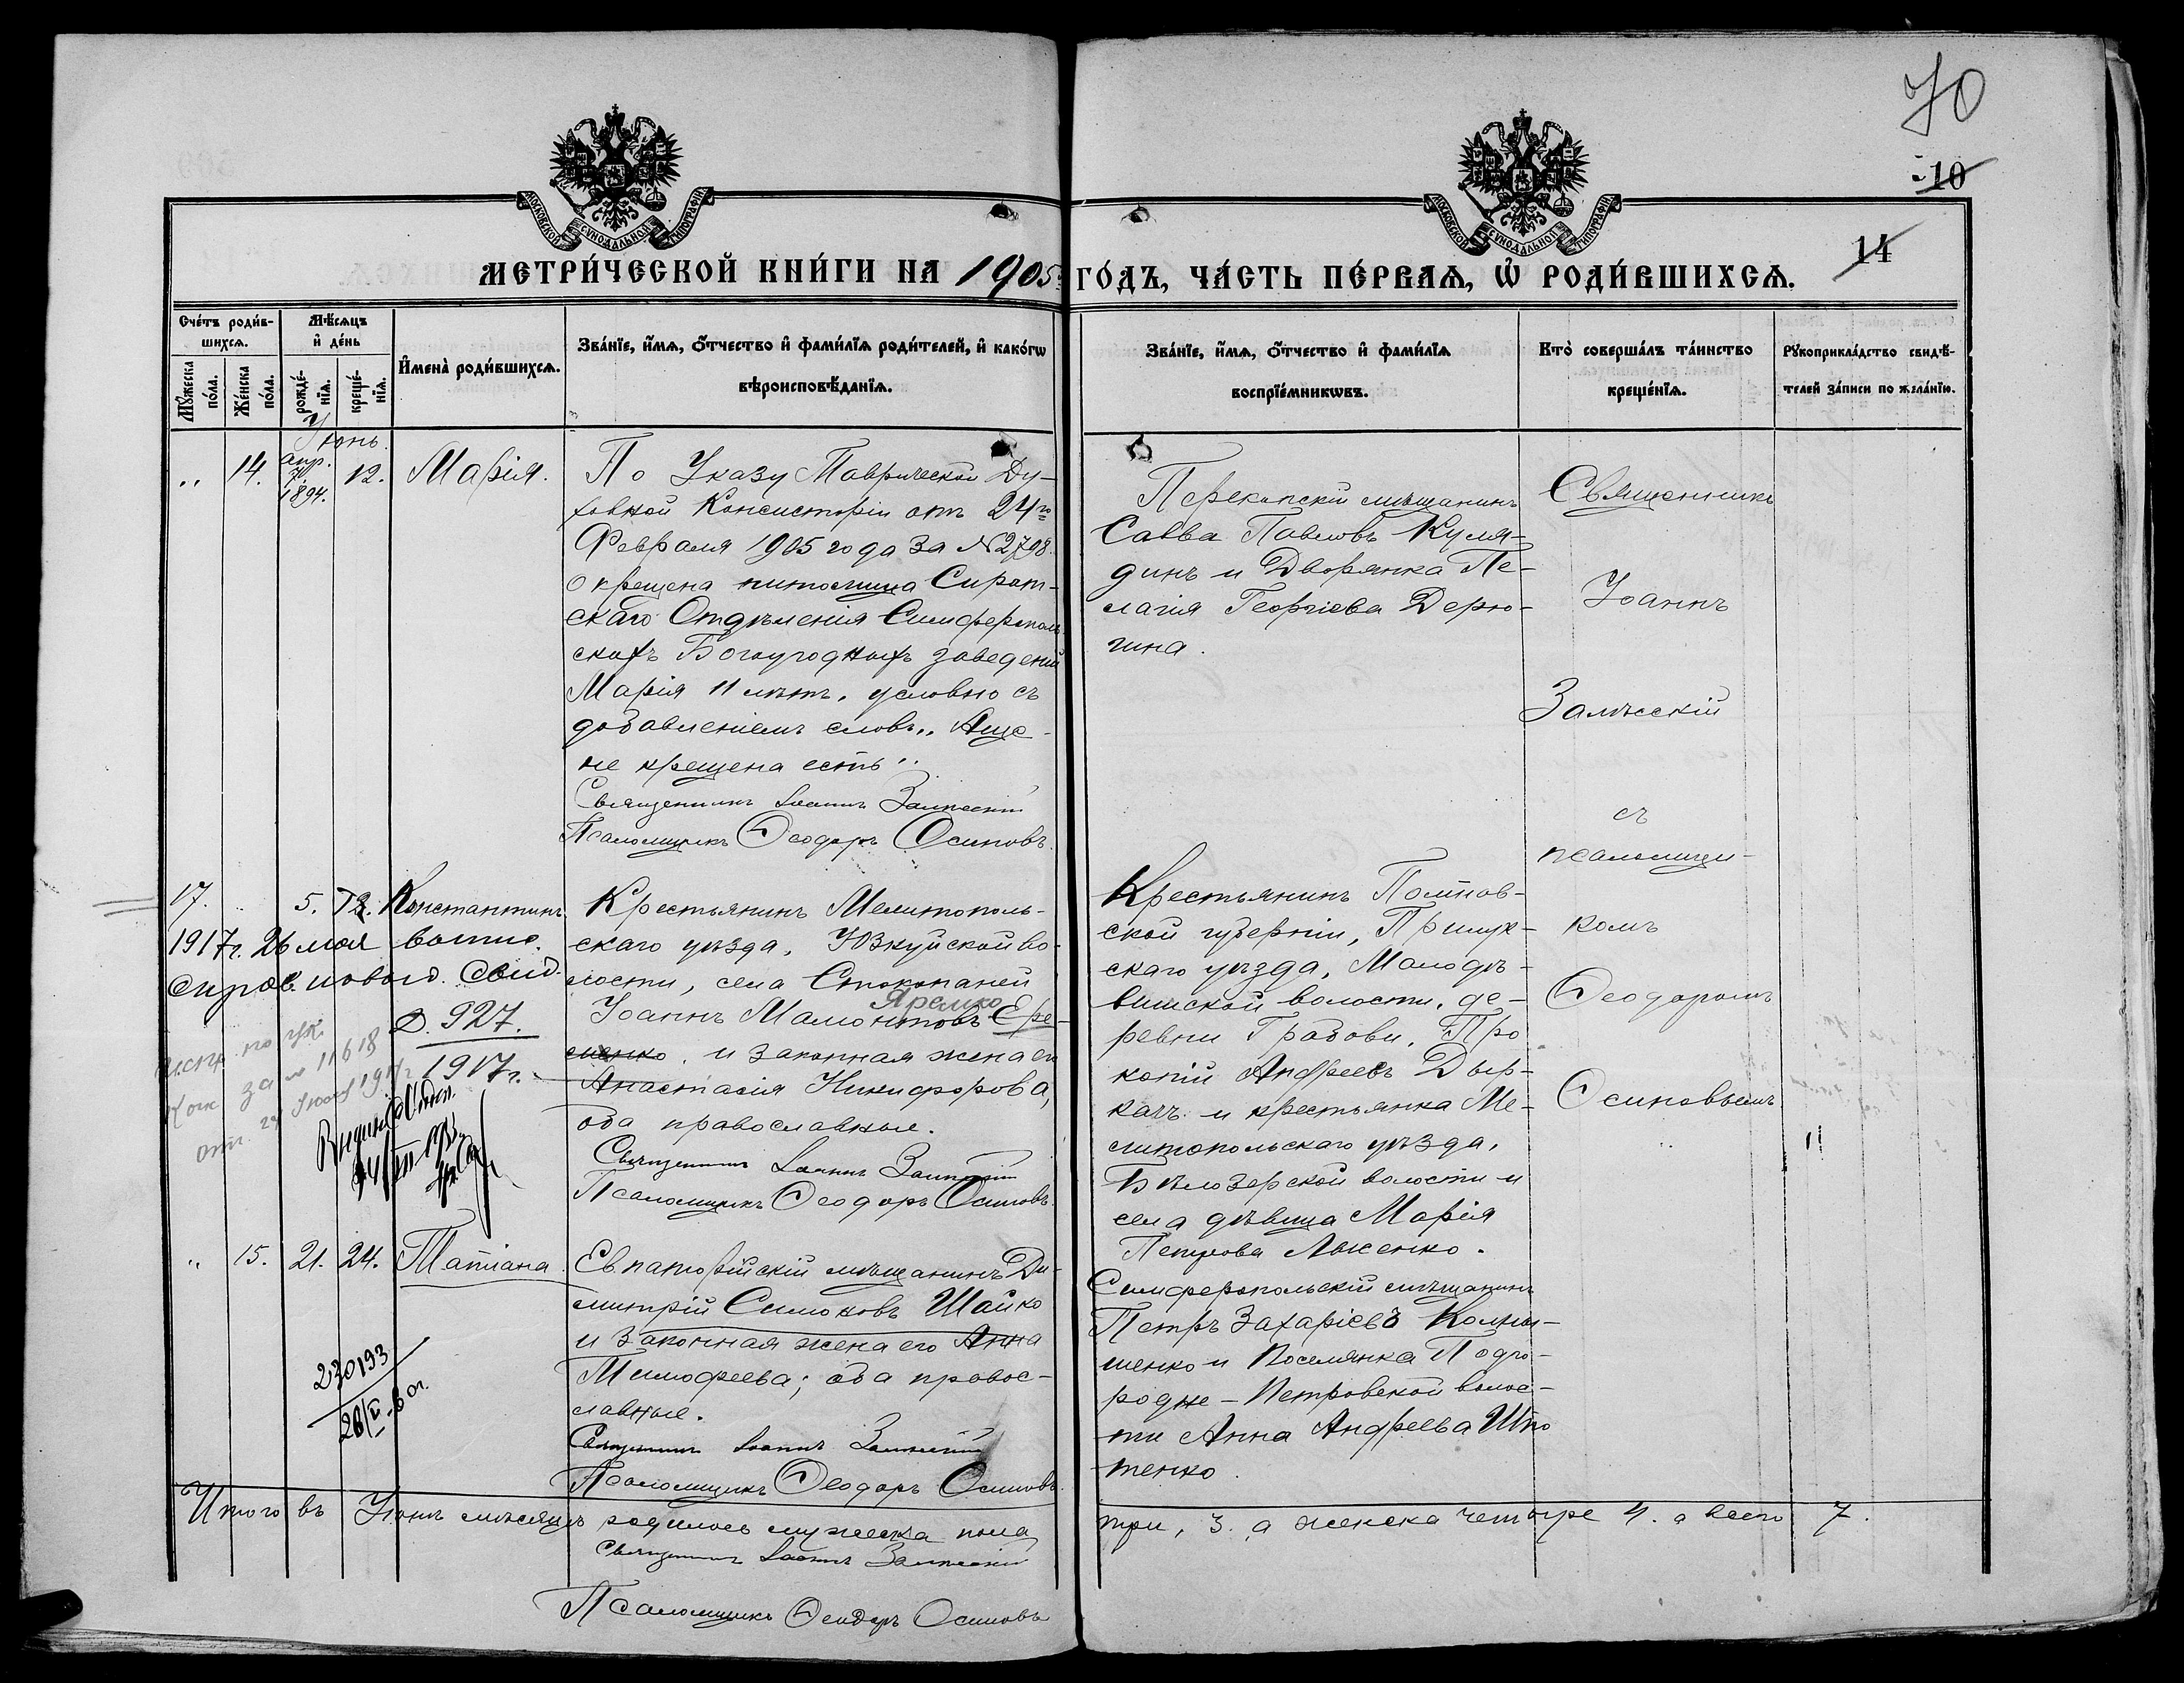 70
10
14
МОСКОВСКОЙ СѴНОДАЛЬНОЙ ТИПОГРАФІИ
МОСКОВСКОЙ СѴНОДАЛЬНОЙ ТИПОГРАФІИ
МЕТРИ́ЧЕСКОЙ КНИ́ГИ НА 1905 ГО́ДЪ, ЧА́СТЬ ПЕ́РВАЯ, Ѡ РОДИ́ВШИХСЯ.
Сче́тъ роди́в-
шихся.
Мѣ́сяцъ
и де́нь
Му́жеска
по́ла.
Же́нска
по́ла.
рожде́-
нія.
креще́-
нія.
Имена̀ роди́вшихся.
Зва́ніе, и́мя, о́тчество и фами́лія роди́телей, и како́гѡ
вѣроисповѣ́данія.
Зва́ніе, и́мя, о́тчество и фами́лія
воспріе́мникѡвъ.
Кто̀ соверша́лъ та́инство
креще́нія.
Рукоприкла́дство свидѣ́-
телей за́писи по жела́нію.
Іюнь.
„ 14. апр. 7. 1894. 12. Марія.
По Указу Таврической Ду-
ховной Консисторіи отъ 24го
Февраля 1905 года за № 2798.
окрещена питомица Сирот-
скаго Отдѣленія Симферополь
скихъ Богоугодныхъ заведеній
Марія 11 лѣтъ, условно съ
добавленіемъ словъ „Аще
не крещена есть".
Священникъ Іоаннъ Залѣсскій
Псаломщикъ Ѳеодоръ Осиповъ.
Перекопскій мѣщанинъ
Савва Павловъ Куля-
динъ и Дворянка Пе-
лагія Георгіева Дерю-
гина.
Священникъ
Іоаннъ
Залѣсскій
съ
псаломщи-
комъ
Ѳеодоромъ
Осиповымъ
17. 5. 12. Константинъ.
1917г. 26 мая
справ. свид.
927.
1917г.
Испр. по ук.
за № 11618
отъ 29 1917г.
Крестьянинъ Мелитополь-
скаго уѣзда, Юзкуйской во-
лости, села Стокопаней
Яремко
Іоаннъ Мамонтовъ Ере-
менко, и законная жена его
Анастасія Никифорова,
оба православные.
Священникъ Іоаннъ Залѣсскій
Псаломщикъ Ѳеодоръ Осиповъ.
Крестьянинъ Полтав-
ской губерніи, Прилук-
скаго уѣзда, Малодѣ-
вишской волости, де-
ревни Грабови, Про
копій Андреевъ Дыр-
качъ и крестьянка Ме-
литопольскаго уѣзда,
Бѣлозерской волости и
села дѣвица Марія
Петрова Лысенко.
„ 15. 21. 24. Татіана.
230193
26/V-60г.
Евпаторійскій мѣщанинъ Ди-
митрій Симоновъ Шайко
и законная жена его Анна
Тимофеева; оба правос-
лавные.
Священникъ Іоаннъ Залѣсскій
Псаломщикъ Ѳеодоръ Осиповъ.
Симферопольскій мѣщанинъ
Петръ Захаріевъ
и Поселянка Подго-
родне-Петровской волос-
ти Анна Андреева
тенко.
Итого въ Іюнѣ мѣсяцѣ родилось мужеска пола три, 3. а женска четыре 4. а всего 7.
Священникъ Іоаннъ Залѣсскій
Псаломщикъ Ѳеодоръ Осиповъ